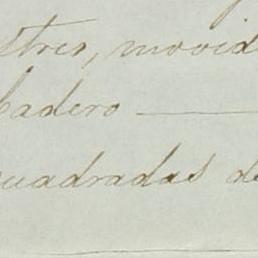 stres, movid
badero —
cuadradas de